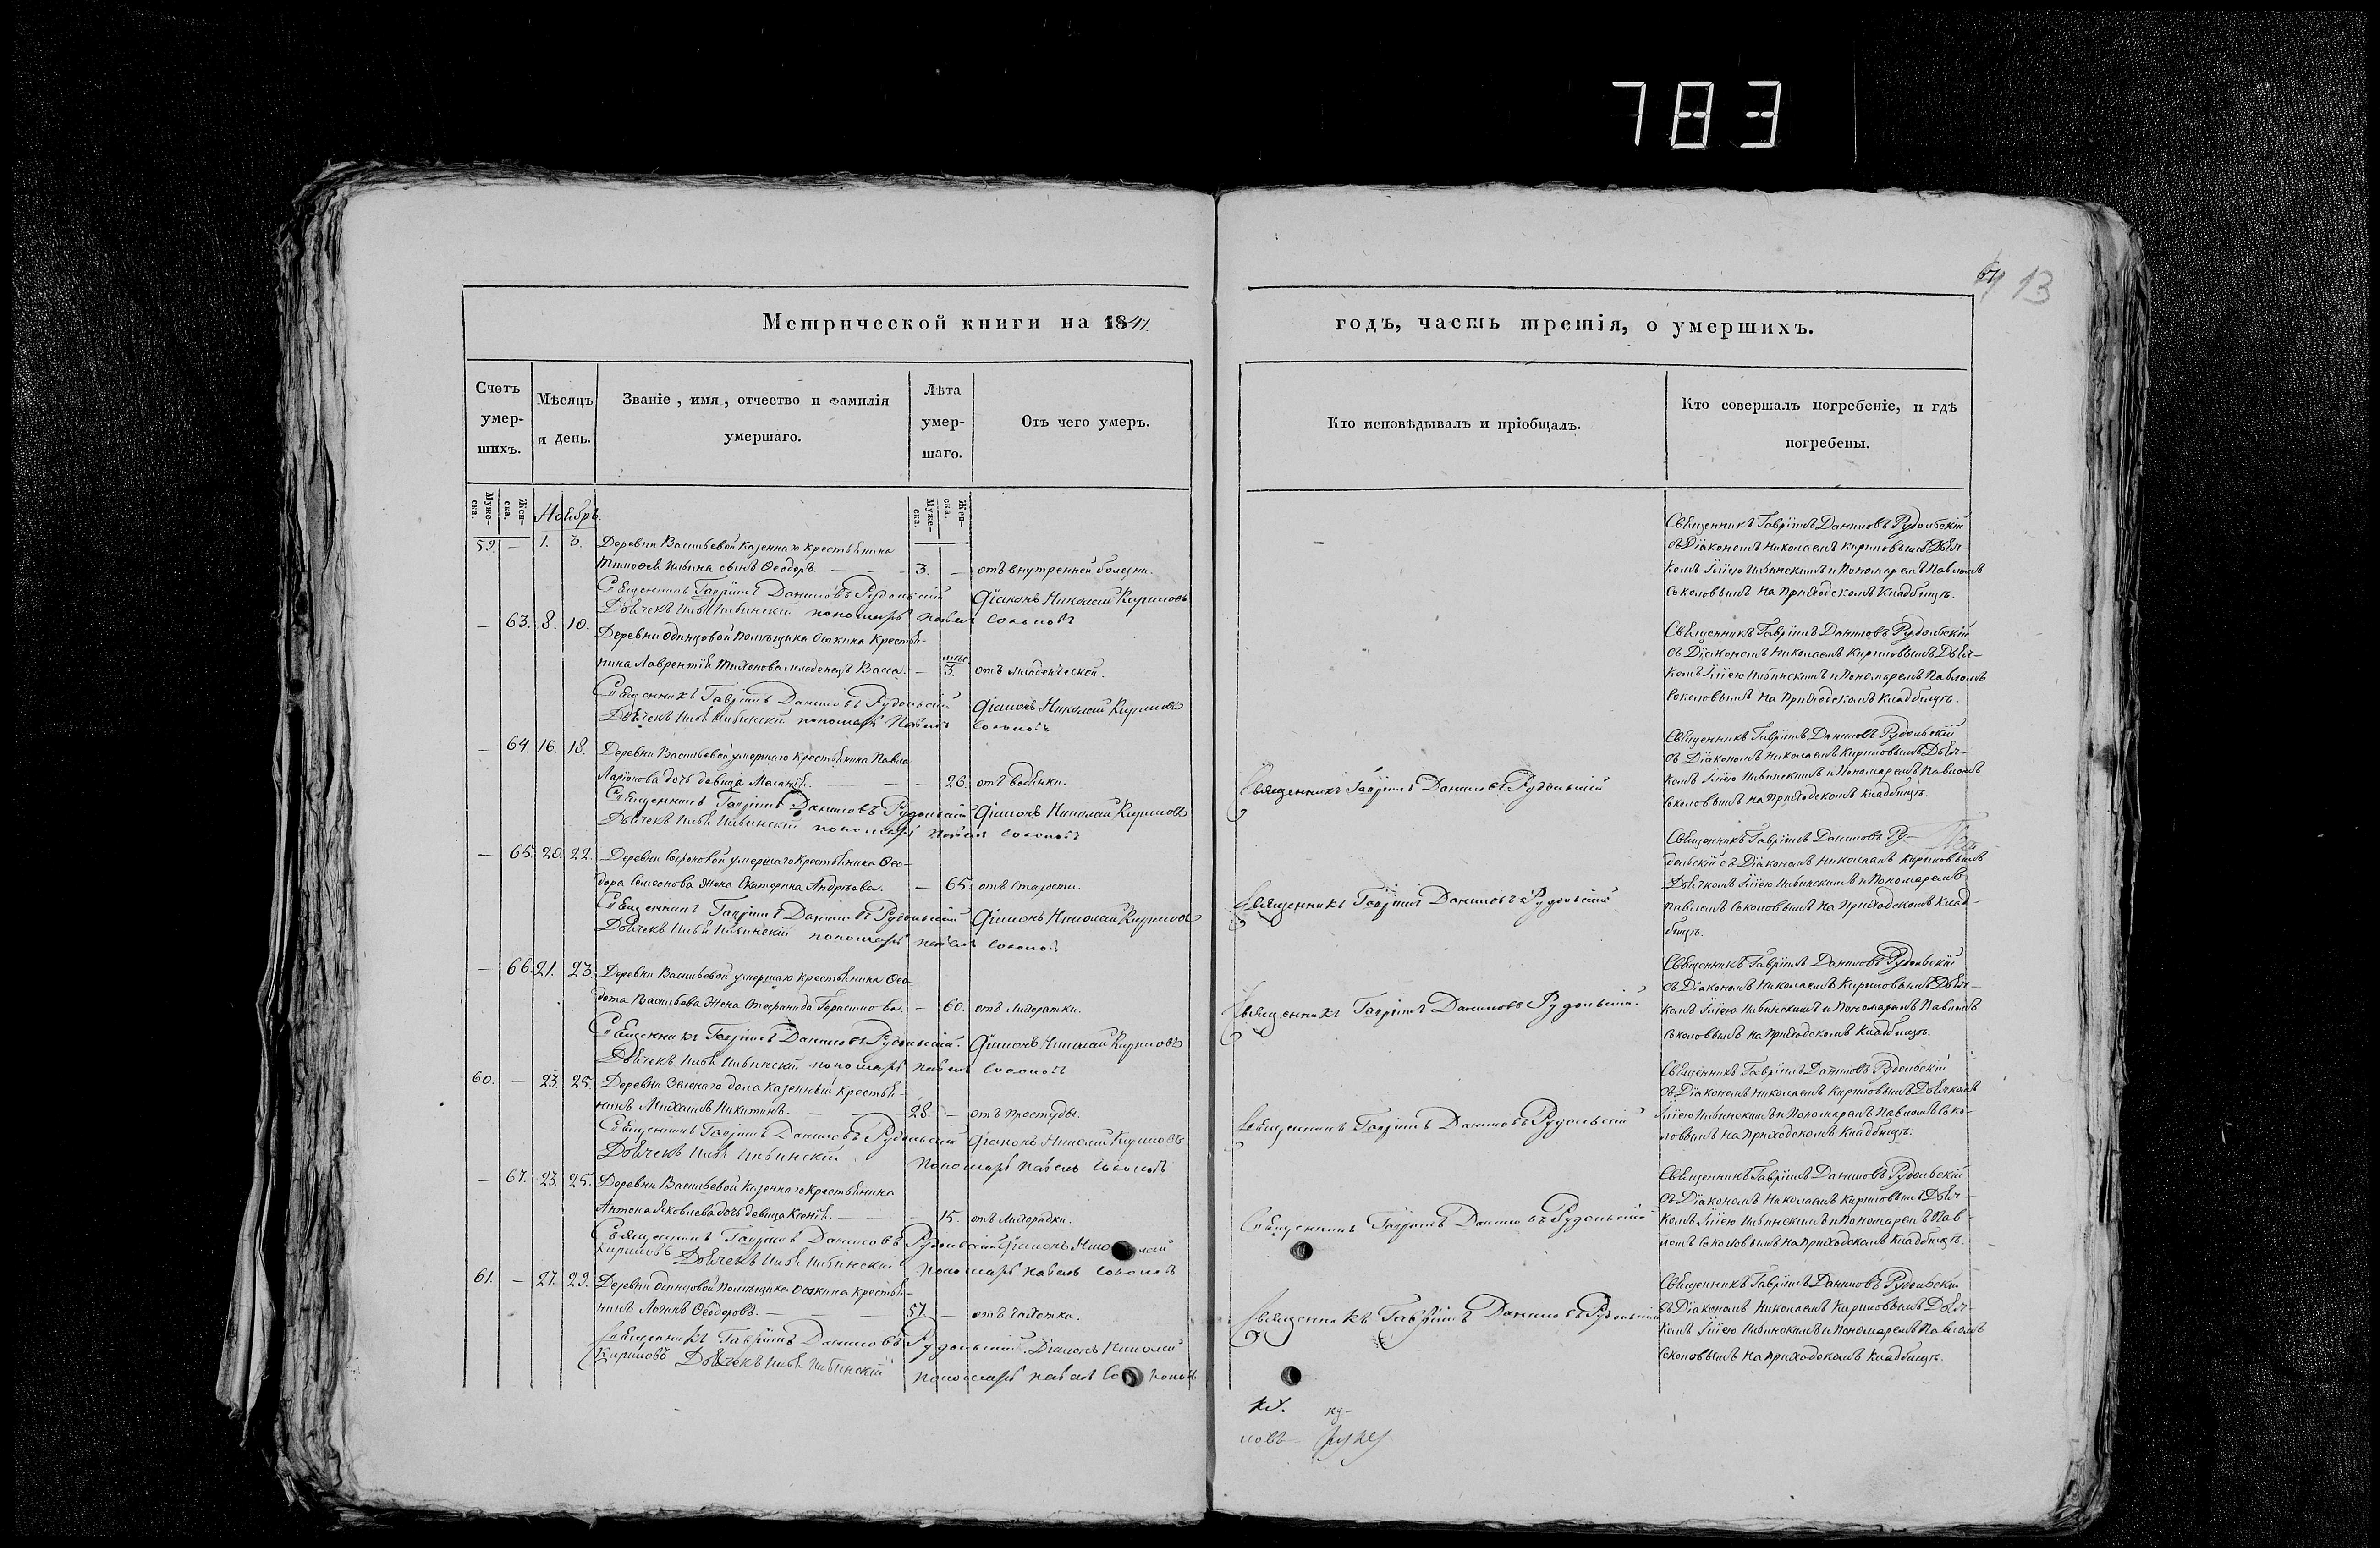 783
13
Метрической книги на 1841.
годъ, часть третія, о умершихъ.
Счетъ умер-шихъ.
Мѣсяцъ и день.
Званіе, имя, отчество и фамилія умершаго.
Лѣта умер-шаго.
Отъ чего умеръ.
Кто исповѣдывалъ и пріобщалъ.
Кто совершалъ погребеніе, и гдѣ погребены.
Муже-ска.
Жен-ска.
Ноябрь.
Муже-ска.
Жен-ска.
59. — 1. 3. Деревни Васильевой казеннаго крестьянина
Тимофея Ильина сынъ Ѳеодоръ. — — 3. — отъ внутренней болезни.
Священникъ Гавріилъ Даниловъ Рудольскій Діаконъ Николай Кириловъ
Дьячекъ Илья Ильинскій пономарь Павелъ Соколовъ
Священникъ Гавріилъ Даниловъ Рудольскій
съ Діакономъ Николаемъ Кириловымъ Дьяч-
комъ Ильею Ильинскимъ и Пономаремъ Павломъ
Соколовымъ на приходскомъ кладбищѣ.
— 63. 8. 10. Деревни Одинцовой помѣщика крестья-
нина Лаврентія Тихонова младенецъ Васса. — 3. отъ младенческой.
Священникъ Гавріилъ Даниловъ Рудольскій Діаконъ Николай Кириловъ
Дьячекъ Илья Ильинскій пономарь Павелъ Соколовъ
Священникъ Гавріилъ Даниловъ Рудольскій
съ Діакономъ Николаемъ Кириловымъ Дьяч-
комъ Ильею Ильинскимъ и Пономаремъ Павломъ
Соколовымъ на приходскомъ кладбищѣ.
— 64. 16. 18. Деревни Васильевой умершаго крестьянина Павла
Ларіонова дочь девица Маланія. — — 26. отъ водянки.
Священникъ Гавріилъ Даниловъ Рудольскій Діаконъ Николай Кириловъ
Дьячекъ Илья Ильинскій пономарь Павелъ Соколовъ
Священникъ Гавріилъ Даниловъ Рудольскій
Священникъ Гавріилъ Даниловъ Рудольскій
съ Діакономъ Николаемъ Кириловымъ Дьяч-
комъ Ильею Ильинскимъ и Пономаремъ Павломъ
Соколовымъ на приходскомъ кладбищѣ.
— 65. 20. 22. Деревни умершаго крестьянина Ѳео-
дора жена Екатерина Андреева. — 65. отъ старости.
Священникъ Гавріилъ Даниловъ Рудольскій Діаконъ Николай Кириловъ
Дьячекъ Илья Ильинскій пономарь Павелъ Соколовъ
Священникъ Гавріилъ Даниловъ Рудольскій
Священникъ Гавріилъ Даниловъ Ру-
дольскій съ Діакономъ Николаемъ Кириловымъ
Дьячкомъ Ильею Ильинскимъ и Пономаремъ
Павломъ Соколовымъ на приходскомъ клад-
бищѣ.
— 66. 21. 23. Деревни Васильевой умершаго крестьянина Ѳео-
дота Васильева жена Стефанида Герасимова. — 60. отъ лихорадки.
Священникъ Гавріилъ Даниловъ Рудольскій. Діаконъ Николай Кириловъ
Дьячекъ Илья Ильинскій пономарь Павелъ Соколовъ
Священникъ Гавріилъ Даниловъ Рудольскій.
Священникъ Гавріилъ Даниловъ Рудольскій
съ Діакономъ Николаемъ Кириловымъ Дьяч-
комъ Ильею Ильинскимъ и Пономаремъ Павломъ
Соколовымъ на приходскомъ кладбищѣ.
60. — 23. 25. Деревни Зеленаго дола казенный крестья-
нинъ Михаилъ Никитинъ. — — 28. — отъ простуды.
Священникъ Гавріилъ Даниловъ Рудольскій Діаконъ Николай Кириловъ
Дьячекъ Илья Ильинскій Пономарь Павелъ Соколовъ
Священникъ Гавріилъ Даниловъ Рудольскій
Священникъ Гавріилъ Даниловъ Рудольскій
съ Діакономъ Николаемъ Кириловымъ Дьячкомъ
Ильею Ильинскимъ и Пономаремъ Павломъ Соко-
ловымъ на приходскомъ кладбищѣ.
— 67. 23. 25. Деревни Васильевой казеннаго крестьянина
Антона Яковлева дочь девица Ксенія. — 15. отъ лихорадки.
Священникъ Гавріилъ Даниловъ Рудольскій Діаконъ Николай
Кириловъ Дьячекъ Илья Ильинскій Пономарь Павелъ Соколовъ
Священникъ Гавріилъ Даниловъ Рудольскій
Священникъ Гавріилъ Даниловъ Рудольскій
съ Діакономъ Николаемъ Кириловымъ Дьяч-
комъ Ильею Ильинскимъ и Пономаремъ Пав-
ломъ Соколовымъ на приходскомъ кладбищѣ.
61. — 27. 29. Деревни Одинцовой помѣщика крестья-
нинъ Логинъ Ѳеодоровъ. — — 57. — отъ чахотки.
Священникъ Гавріилъ Даниловъ Рудольскій. Діаконъ Николай
Кириловъ Дьячекъ Илья Ильинскій Пономарь Павелъ Соколовъ
Священникъ Гавріилъ Даниловъ Рудольскій
Священникъ Гавріилъ Даниловъ Рудольскій
съ Діакономъ Николаемъ Кириловымъ Дьяч-
комъ Ильею Ильинскимъ и Пономаремъ Павломъ
Соколовымъ на приходскомъ кладбищѣ.